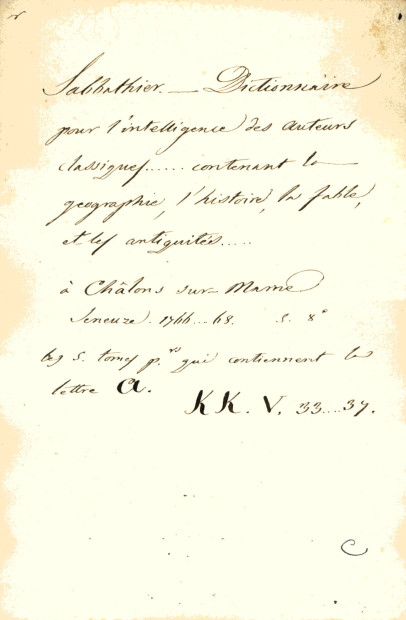 Sabbathier. — Dictionnaire
pour l'intelligence des auteurs
classiques...... contenant la
geographie, l'histoire, la fable,
et les antiquités.....
à Châlons sur-Marne
Seneuze. 1766...68. 5. 8°
les 5. tomes p.rs qui contiennent la
lettre A.
KK. V. 33....37.
C